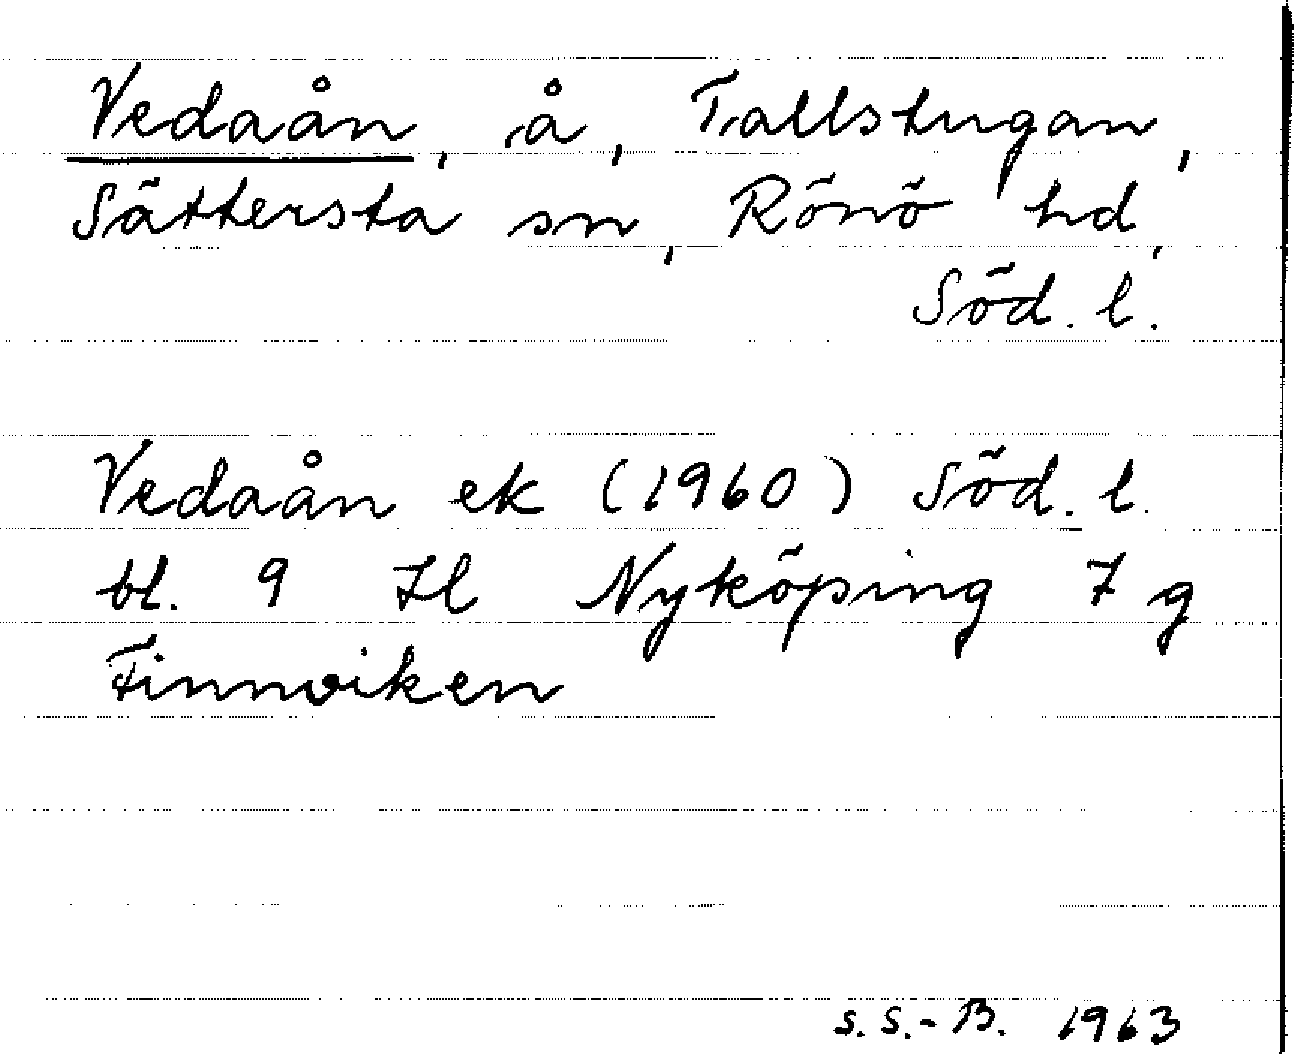 Vedaån, å, Tallstugan,
Sättersta sn, Rönö hd,
Söd. l.
Vedaån ek (1960) Söd. l.
bl. 9 Il Nyköping 7 g
Finnviken
S. S.-B. 1963